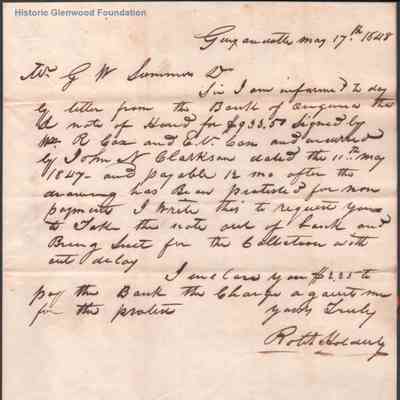 Historic Glenwood Foundation
Guyandotte May 17th 1848
Mr G W Summers Dr
Sir I am informed to day
by letter from the Bank of Virginia that
a note of Hand for $933.50 Signed by
Wm R Cox and E. V. Cox and indorsed
by John N Clarkson dated the 11th May
1847 - and payable 12 mo after the
drawing has Been protested for non
payment I Write this to request you
to Take the note out of bank and
Bring Suit for the Collection with
out delay
I enclose you $2.25 to
pay the Bank the Charge against me
for the protest yours Truly
Robt Holderby